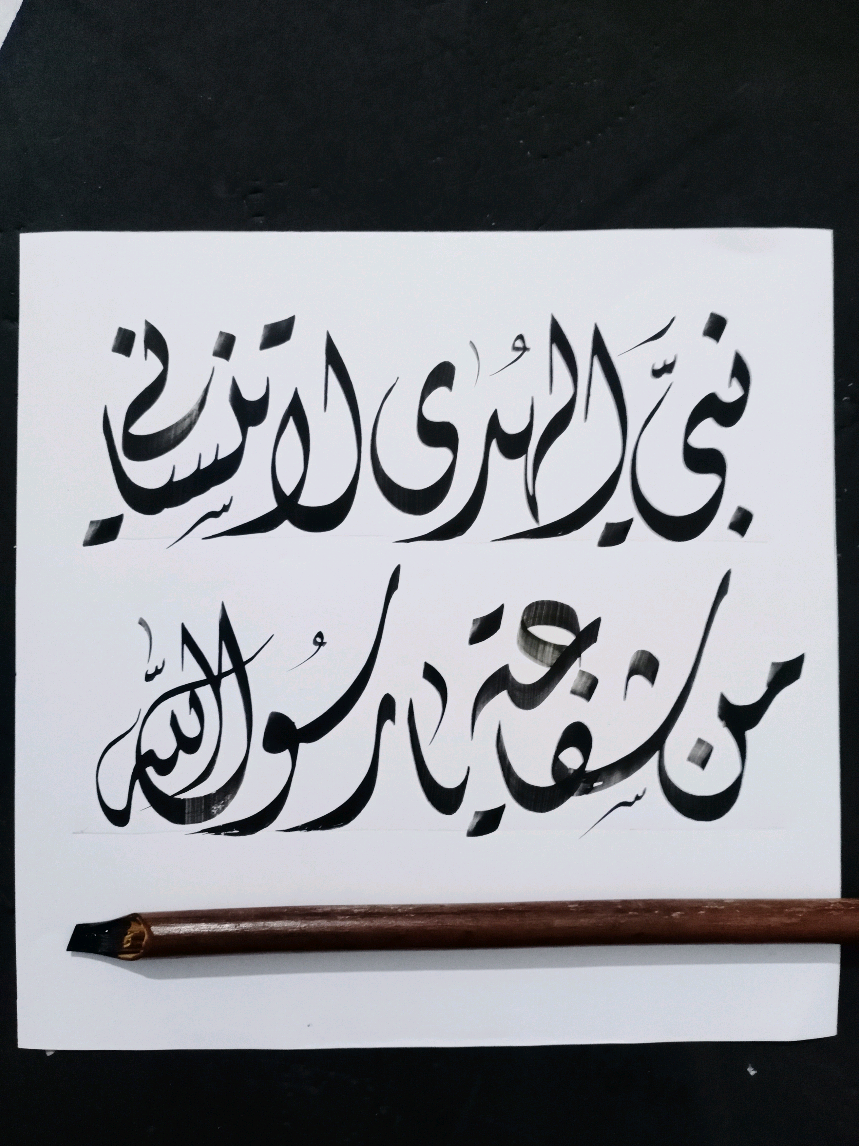 نبيَّ الهُدى لا تنساني
من شفاعة يا رسُول اللّٰه